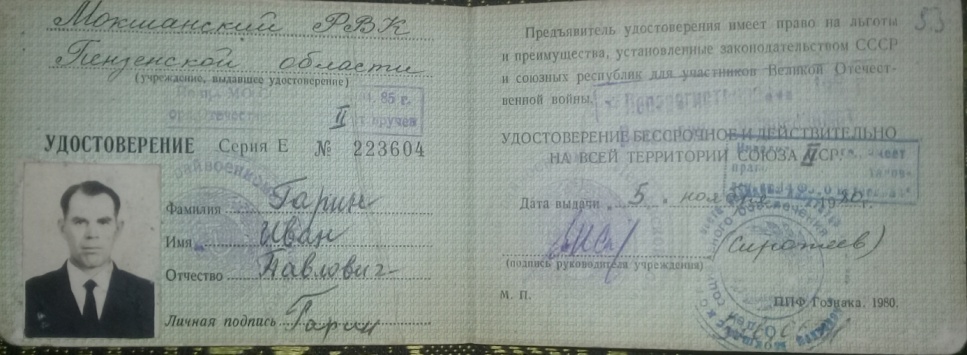 Мокшанский РВК
Пензенской области
(учреждение, выдавшее удостоверение)
85 г.
II
вручен
УДОСТОВЕРЕНИЕ Серия Е № 223604
Фамилия Гарин
Имя Иван
Отчество Павлович
Личная подпись Гарин
53
Предъявитель удостоверения имеет право на льготы
и преимущества, установленные законодательством СССР
и союзных республик для участников Великой Отечест-
венной войны.
УДОСТОВЕРЕНИЕ БЕССРОЧНОЕ И ДЕЙСТВИТЕЛЬНО
НА ВСЕЙ ТЕРРИТОРИИ СОЮЗА ССР.
Дата выдачи 5 ноября 1980 г.
(Сиротеев)
(подпись руководителя учреждения)
М. П.
ППФ Гознака. 1980.